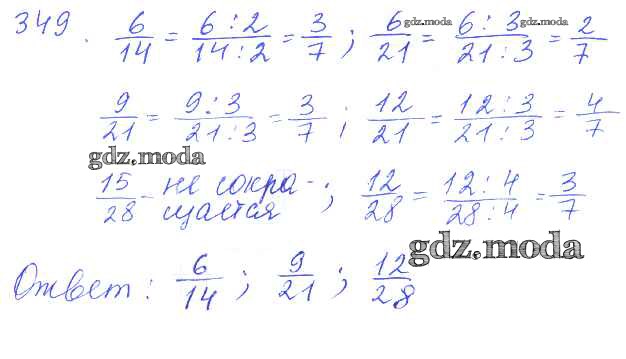 349. 6/14 = 6:2/14:2 = 3/7; 6/21 = 6:3/21:3 = 2/7
gdz.moda gdz.moda
9/21 = 9:3/21:3 = 3/7; 12/21 = 12:3/21:3 = 4/7
gdz.moda
15/28 - не сокра-
щается; 12/28 = 12:4/28:4 = 3/7
gdz.moda
Ответ: 6/14; 9/21; 12/28